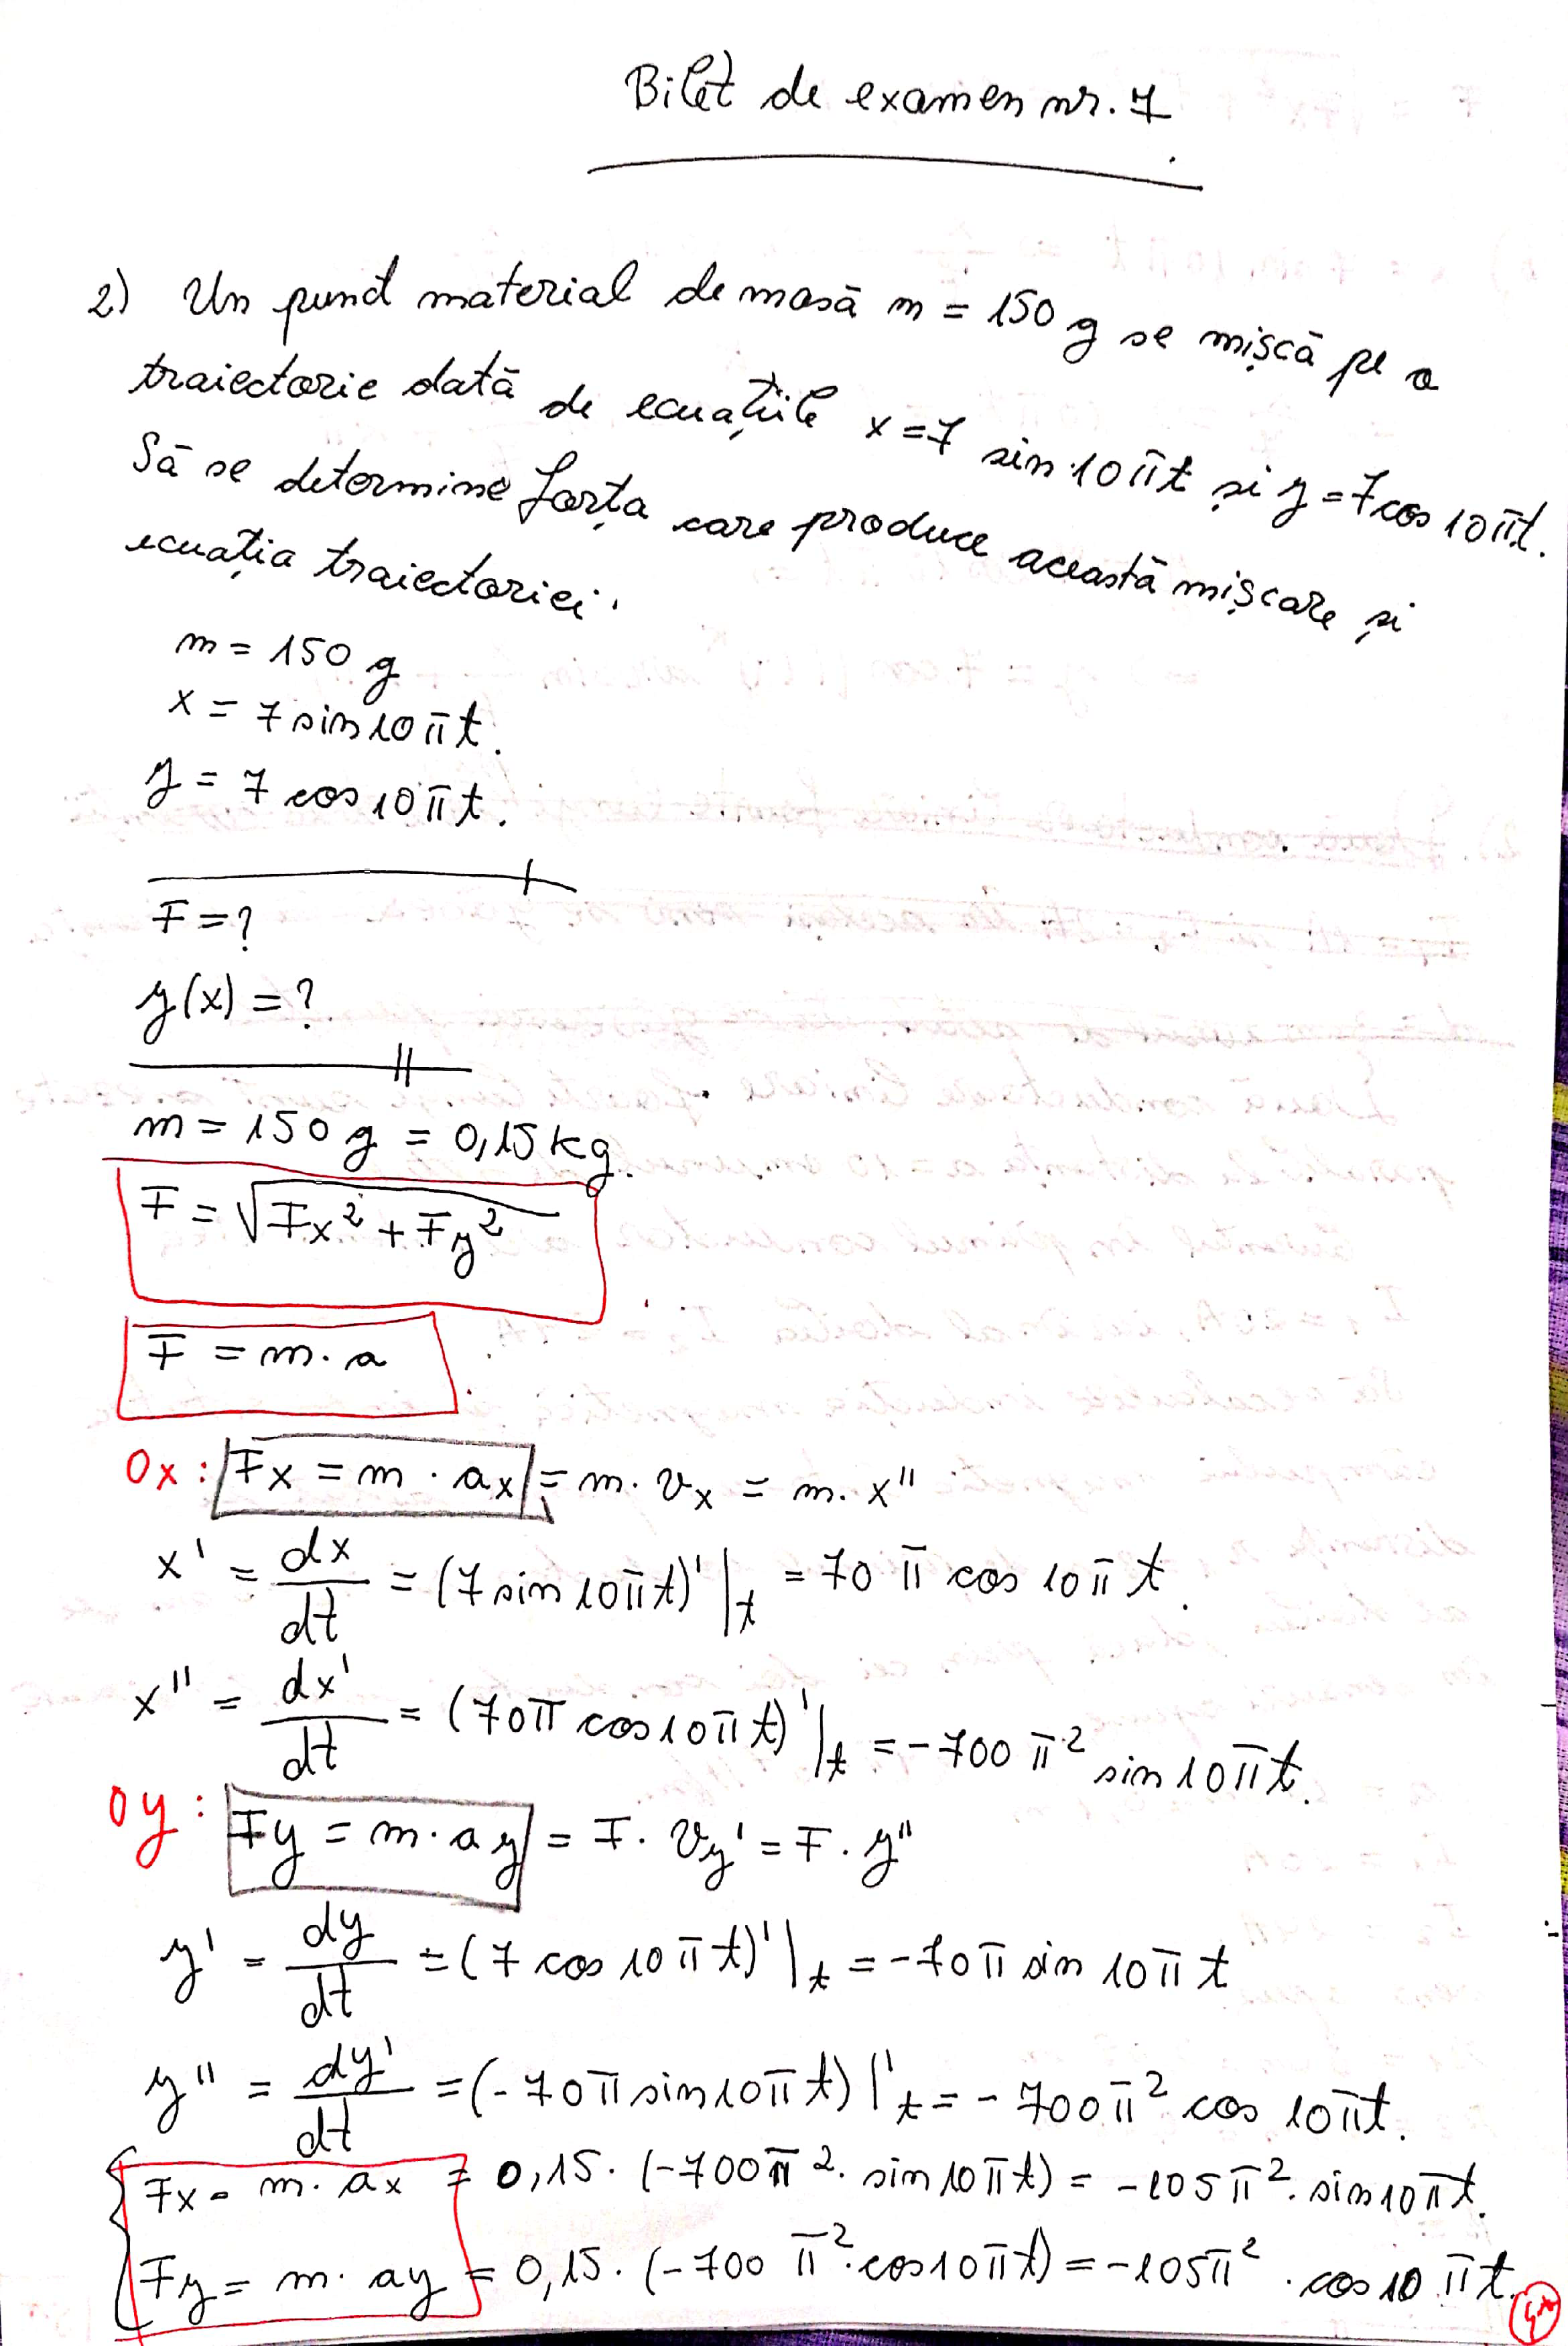 Bilet de examen nr. 7
2) Un punct material de masă m = 150 g se mișcă pe o
traiectorie dată de ecuațiile x = 7 sin 10πt și y = 7 cos 10πt.
Să se determine forța care produce această mișcare și
ecuația traiectoriei.
m = 150 g
x = 7 sin 10πt.
y = 7 cos 10πt.
F = ?
y(x) = ?
m = 150 g = 0,15 kg.
F = √Fx² + Fy²
F = m · a
Ox: Fx = m · ax = m · vx = m · x''
x' = dx/dt = (7 sin 10πt)'|t = 70π cos 10πt.
x'' = dx'/dt = (70π cos 10πt)'|t = -700π² sin 10πt.
Oy: Fy = m · ay = F · vy' = F · y''
y' = dy/dt = (7 cos 10πt)'|t = -70π sin 10πt
y'' = dy'/dt = (-70π sin 10πt)|'t = -700π² cos 10πt.
{ Fx = m · ax = 0,15 · (-700π² · sin 10πt) = -105π² · sin 10πt.
Fy = m · ay = 0,15 · (-700π² · cos 10πt) = -105π² · cos 10πt.